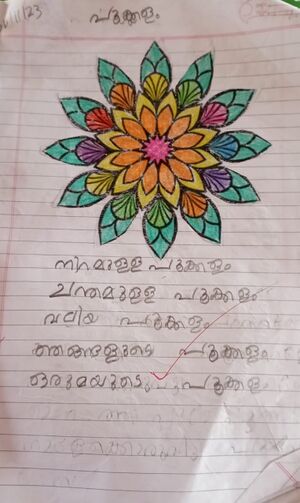 /11/23
പൂക്കളം
നിറമുള്ള പൂക്കളം
ചന്തമുള്ള പൂക്കളം
വലിയ പൂക്കളം
ഞങ്ങളുടെ പൂക്കളം
ഒരുമയുടെ പൂക്കളം